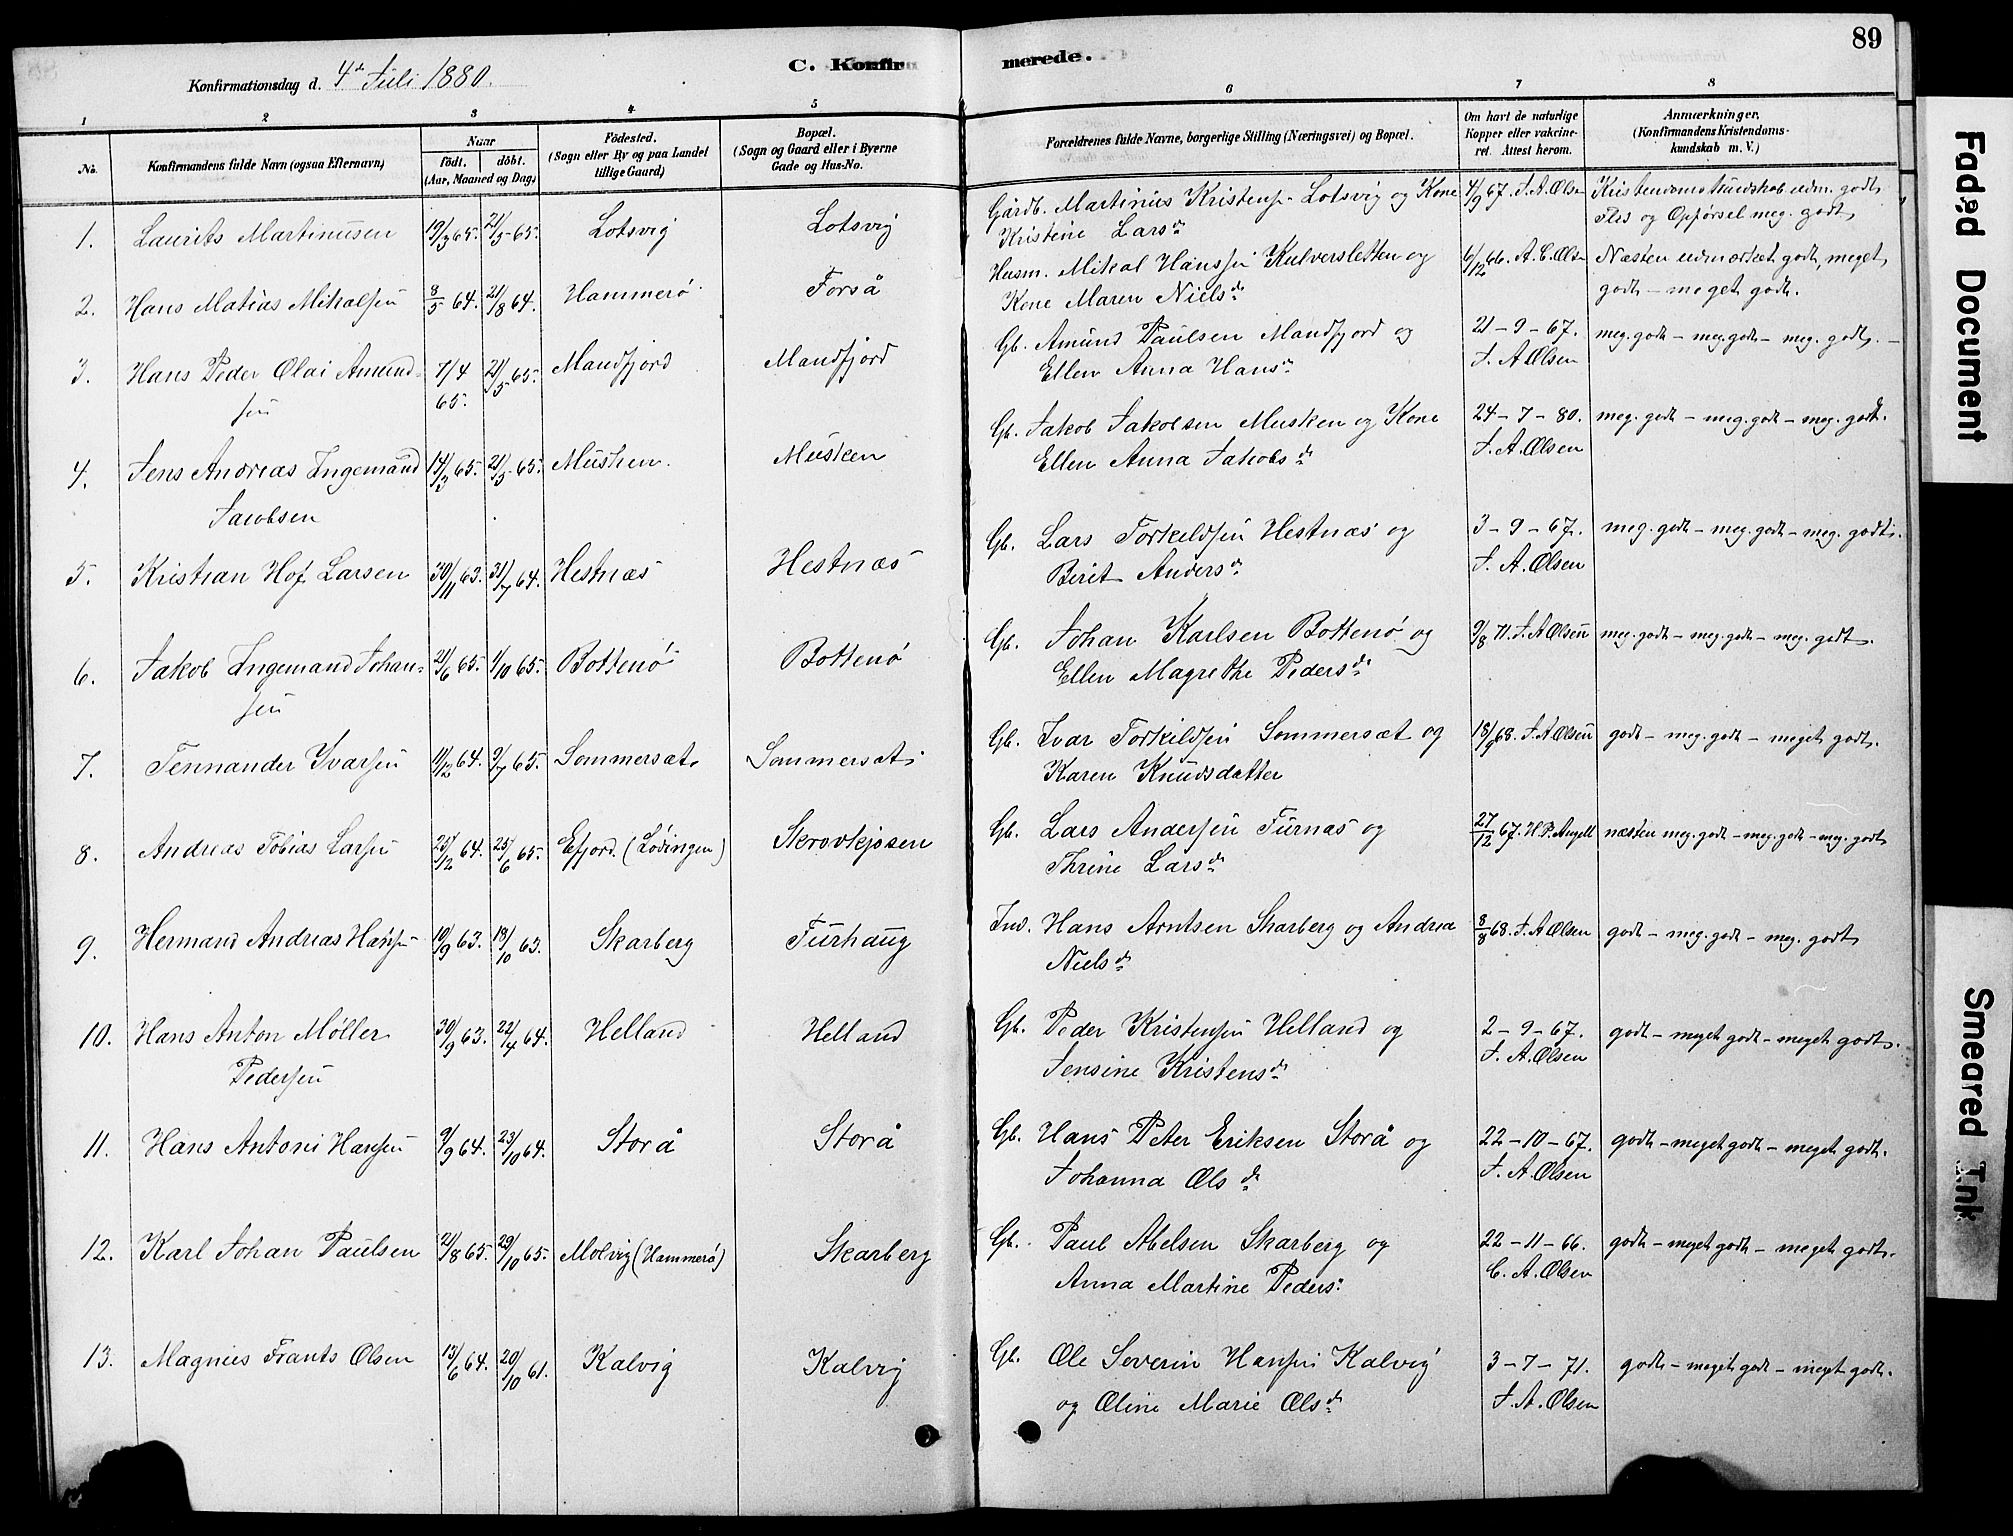 89
C. Konfirmerede.
Konfirmationsdag d. 4de Juli 1880.
1 2 3 4 5 6 7 8
No. Konfirmandens fulde Navn (ogsaa Efternavn)
Naar født. døbt. (Aar, Maaned og Dag)
Födested. (Sogn eller By og paa Landet tillige Gaard)
Bopæl. (Sogn og Gaard eller i Byerne Gade og Hus-No.
Forældrenes fulde Navne, borgerlige Stilling (Næringsvei) og Bopæl.
Om havt de naturlige Kopper eller vakcineret. Attest herom.
Anmærkninger. (Konfirmandens Kristendomskundskab m. V.)
1. Laurits Martinusen 19/3 65. 21/5 65. Lotsvig Lotsvig Gårdb. Martinus Kristensen Lotsvig og Kone 4/9 67. J. A. Olsen Kristendomskundskab udm. godt
Kristine Larsd. Flid og Opførsel meg. godt
2. Hans Matias Mikalsen 8/5 64. 21/8 64. Hammerø Forså Husm. Mikal Hanssen Kulversletten og 6/12 66. A. C. Olsen Næsten udmærket godt, meget
Kone Maren Nielsd. godt – meget godt.
3. Hans Peder Olai Amund- 7/4 65. 21/5 65. Mandfjord Mandfjord Gb. Amund Paulsen Mandfjord og 21–9–67. meg. godt – meg. godt – meg. godt. –
sen Ellen Anna Hansd. J. A. Olsen
4. Jens Andreas Ingemand 14/3 65. 21/5 65. Musken. Musken Gb. Jakob Jakobsen Musken og Kone 24–7–80. meg. godt – meg. godt – meg. godt.
Jacobsen Ellen Anna Jakobsd. J. A. Olsen
5. Kristian Hof Larsen 30/11 63. 31/7 64. Hestnæs Hestnæs Gb. Lars Torkildsen Hestnæs og 3–9–67. meg. godt – meg. godt – meg. godt.
Berit Andersd. J. A. Olsen
6. Jakob Ingemand Johan- 21/6 65. 1/10 65. Bottenø Bottenø Gb. Johan Karlsen Bottenø og 9/8 71. J. A. Olsen meg. godt – meg. godt – meg. godt.
sen Ellen Magrethe Pedersd.
7. Tennander Ivarsen 11/12 64. 9/7 65. Sommersæt. Sommersæt Gb. Ivar Torkildsen Sommersæt og 18/9 68. J. A. Olsen godt – meg. godt – meget godt.
Karen Knudsdatter
8. Andreas Tobias Larsen 25/12 64. 25/6 65. Efjord. (Lødingen) Skrovkjosen Gb. Lars Andersen Furnæs og 27/12 67. H. P. Angell næsten meg. godt – meg. godt – meg. godt
Thrine Larsd.
9. Hermand Andreas Hansen 10/9 63. 18/10 63. Skarberg Furhaug Ind. Hans Arntsen Skarberg og Andrea 8/8 68. J. A. Olsen godt – meg. godt – meg. godt
Nielsd.
10. Hans Anton Møller 30/9 63. 22/4 64. Helland Helland Gb. Peder Kristensen Helland og 2–9–67. godt – meget godt – meget godt.
Pedersen Jensine Kristensd. J. A. Olsen
11. Hans Antoni Hansen 9/9 64. 23/10 64. Storå Storå Gb. Hans Peter Eriksen Storå og 22–10–67. godt – meget godt – meget godt.
Johanna Olsd. J. A. Olsen
12. Karl Johan Paulsen 21/8 65. 29/10 65. Molvig (Hammerø) Skarberg Gb. Paul Abelsen Skarberg og 22–11–66. godt – meget godt – meget godt.
Anna Martine Pedersd. C. A. Olsen
13. Magnus Frants Olsen 13/6 64. 20/10 61. Kalvig Kalvig Gb. Ole Severin Hansen Kalvig 3–7–71. godt – meget godt – meget godt.
og Oline Marie Olsd. J. A. Olsen
Faded Document
Smeared Ink